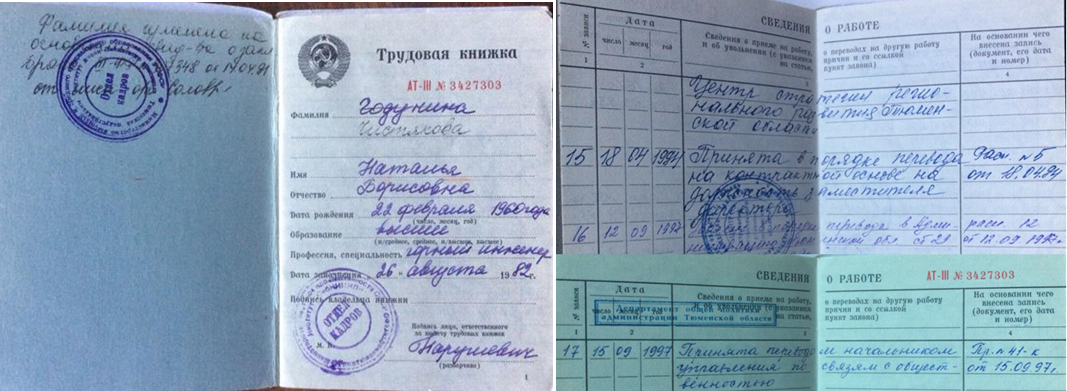 Фамилия изменена на
от
Отдел
кадров
Трудовая книжка
АТ-III № 3427303
Годунина
Фамилия Чистякова
Имя Наталья
Отчество Борисовна
Дата рождения 22 февраля 1960 года
(число, месяц, год)
Образование высшее
Профессия, специальность горный инженер
Дата заполнения „ 26 " августа 1982 г.
Подпись владельца книжки
ОТДЕЛ
КАДРОВ
М. П.
Подпись лица, ответственного
за выдачу трудовых книжек
Нарушевич
(разборчиво)
1
СВЕДЕНИЯ О РАБОТЕ
№ записи
Дата
число месяц год
Сведения о приеме на работу, о переводах на другую работу
и об увольнении (с указанием причин и со ссылкой
на статью, пункт закона)
На основании чего
внесена запись
(документ, его дата
и номер)
1 2 4
Центр стратегии регио-
нального развития Тюмен-
ской области
15 18 04 1994 Принята в порядке перевода Расп. №5
на контрактной основе на от 18.04.94
должность заместителя
директора
16 12 09 перевода в расп. 12
ст 29 от 12.09
СВЕДЕНИЯ О РАБОТЕ АТ-III № 3427303
№ записи
Дата
число месяц год
Сведения о приеме на работу, о переводах на другую работу
и об увольнении (с указанием причин и со ссылкой
на статью, пункт закона)
На основании чего
внесена запись
(документ, его дата
и номер)
Департамент общей политики
администрации Тюменской области
1 2 4
17 15 09 1997 Принята переводом начальником Пр. №41-к
управления по связям с общест- от 15.09.97г.
венностью